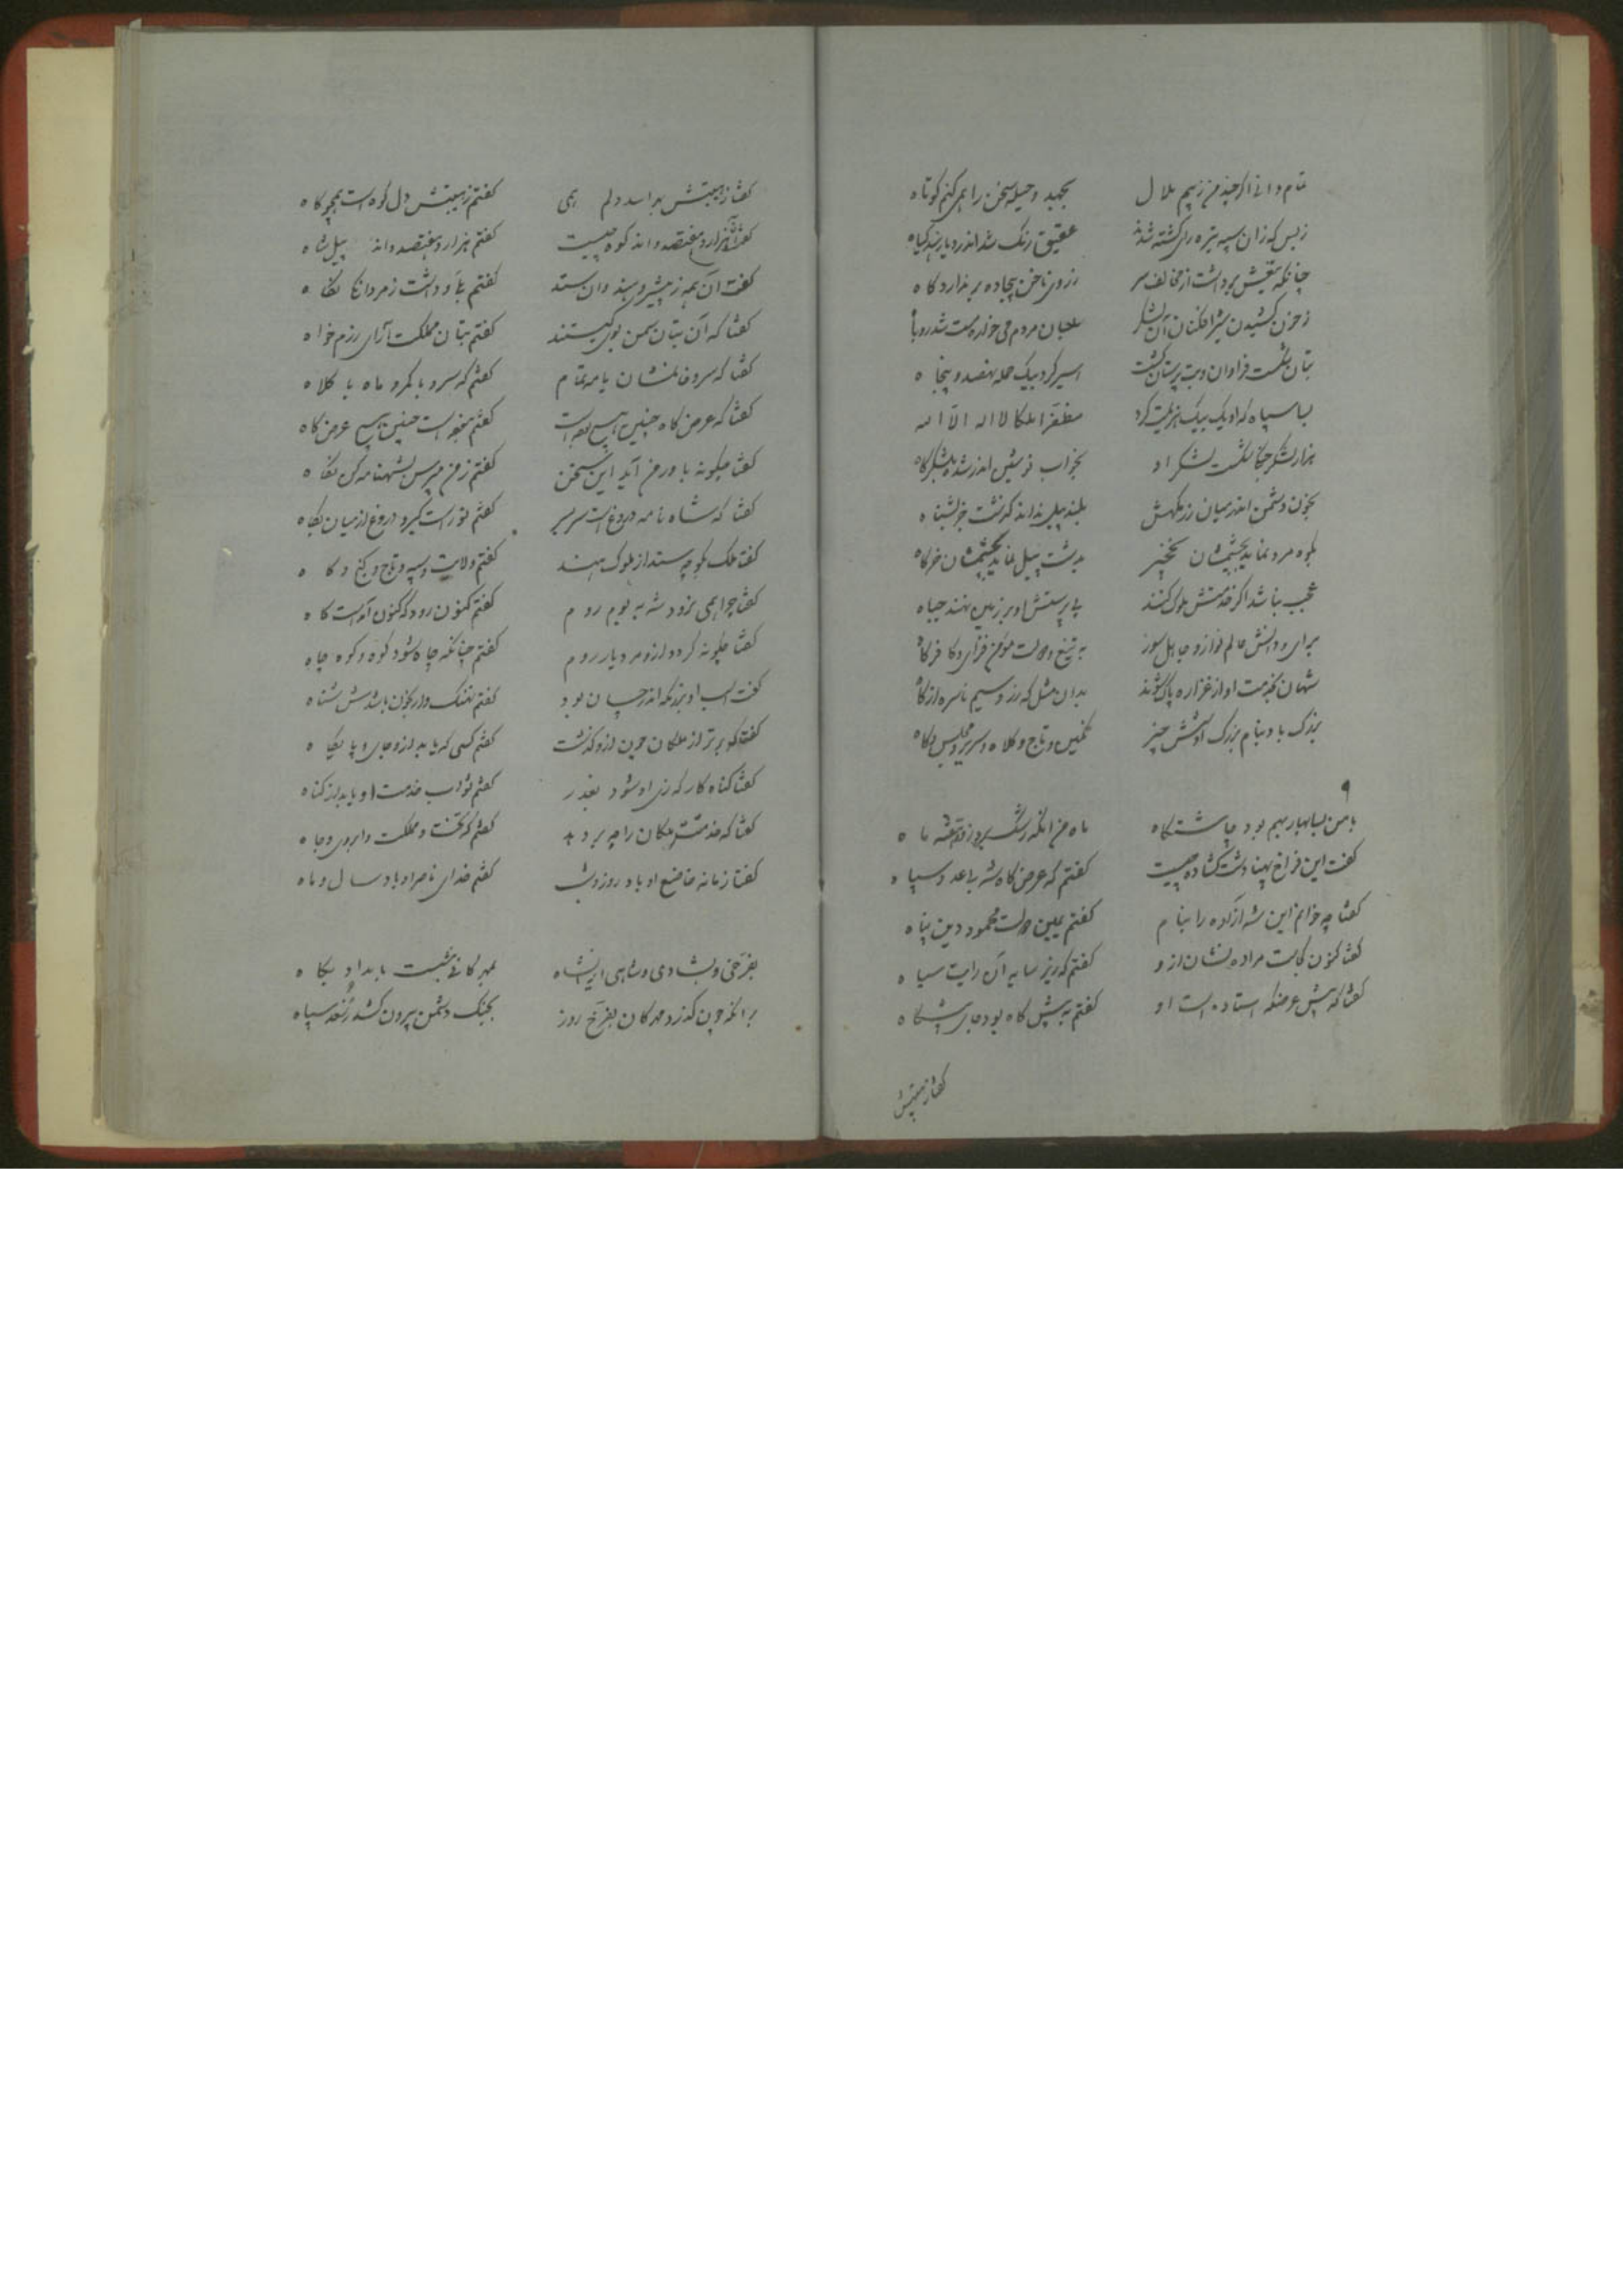 تمام دانی اگر چند من ز بیم ملال بجهد و حیله سخن را همی کنم کوتاه
ز بس که زان سپه تیره رای کشته شدند عقیق رنگ شد اندر دیار هند گیاه
چنانکه تیغش برداشت از مخالف سر ز روی ناخن بیجاده بر ندارد کاه
ز خون کشیدن شیر افکنان آن لشکر میان مردم می خواره مست شد روباه
بتان شکست فراوان و بت پرستان کشت اسیر کرد بیک حمله نهصد و پنجاه
بسا سپاه که او یک بیک هزیمت کرد مظفرا ملکا لااله الا الله
هزار لشکر جنگی شکست لشکر او بخواب نوشین اندر شده بلشکرگاه
بخون دشمن اندر میان رزمگهش بلند پیل نداند گذشت جز بشناه
بکوه مرد نماند بچشمشان نخچیر بدشت پیل نماید بچشمشان خرگاه
عجب نباشد اگر خدمتش ملوک کنند پی پرستش او بر زمین نهند جباه
برای و دانش عالم نواز و جاهل سوز به تیغ و دولت مؤمن فزای و کافر کاه
شهان بخدمت او از عوار پاک شوند بدان مثل که زر و سیم ناسره از گاه
بزرگ باد بنام بزرگ او شش چیز نگین و تاج و کلاه و سریر و مجلس و گاه
۹
با من بسا بهار بهم بود چاشتگاه ماه من آنکه رشک برد زو دو هفته ماه
گفت این فراخ پهنا دشت گشاده چیست گفتم که عرض گاه شه با عدد سپاه
گفتا چه خوانم این شه آزاده را بنام گفتم یمین دولت محمود دین پناه
گفتا کنون کجاست مرا ده نشان ازو گفتم که زیر سایه آن رایت سیاه
گفتا که پیش عرضگه استاده است او گفتم به پیش گاه بود جای پیشگاه
گفتا ز هیبتش
گفتا ز هیبتش بهراسد دلم همی گفتم ز هیبتش دل کوه است همچو کاه
گفتا هزار و هفتصد و اند کوه چیست گفتم هزار و هفتصد و اند پیل شاه
گفت آن همه ز بیشه و هندوان ستد گفتم بلی و داشت ز مردان نگاه
گفتا که آن بتان سمن بوی کیستند گفتم بتان مملکت آرای رزم خواه
گفتا که سرو ماند نشان یا مه تمام گفتم که سرو با کمر و ماه با کلاه
گفتا که عرض گاه چنین هیچ شه نداشت گفتم نخواست چنین هیچ عرض گاه
گفتا چگونه باور من آید این سخن گفتم ز من مپرس بشهنامه کن نگاه
گفتا که شاه نامه دروغ است سربسر گفتم تو راست گیر و دروغ از میان بکاه
گفت ملک بگو چه ستد از ملوک هند گفتم ولایت و سپه و تاج و گنج و گاه
گفتا چرا همی نرود شه به بوم روم گفتم کنون رود که کنون آمدست گاه
گفتا چگونه گردد ازو مر دیار روم گفتم چنانکه چاه شود کوه و کوه چاه
گفت اسب او بزنگه اندر چسان بود گفتم نهنگ وار بخون باشدش شناه
گفتا که برتر از ملکان چون ازو گذشت گفتم کسی که یابد ازو جای و پایگاه
گفتا گناه کار که زی او شود بعذر گفتم ثواب خدمت او یابد از گناه
گفتا که خدمتش ملکان را چه بر دهد گفتم که تخت و مملکت و ابروی و جاه
گفتا زمانه خاضع او باد روز و شب گفتم خدای ناصر او باد سال و ماه
بفرخی و بشادی و شاهی ایرانشاه بمهرگانی بنشست بامداد پگاه
برانکه چون گذرد مهرگان بفرخ روز بجنگ دشمن بیرون کشد بسغد سپاه